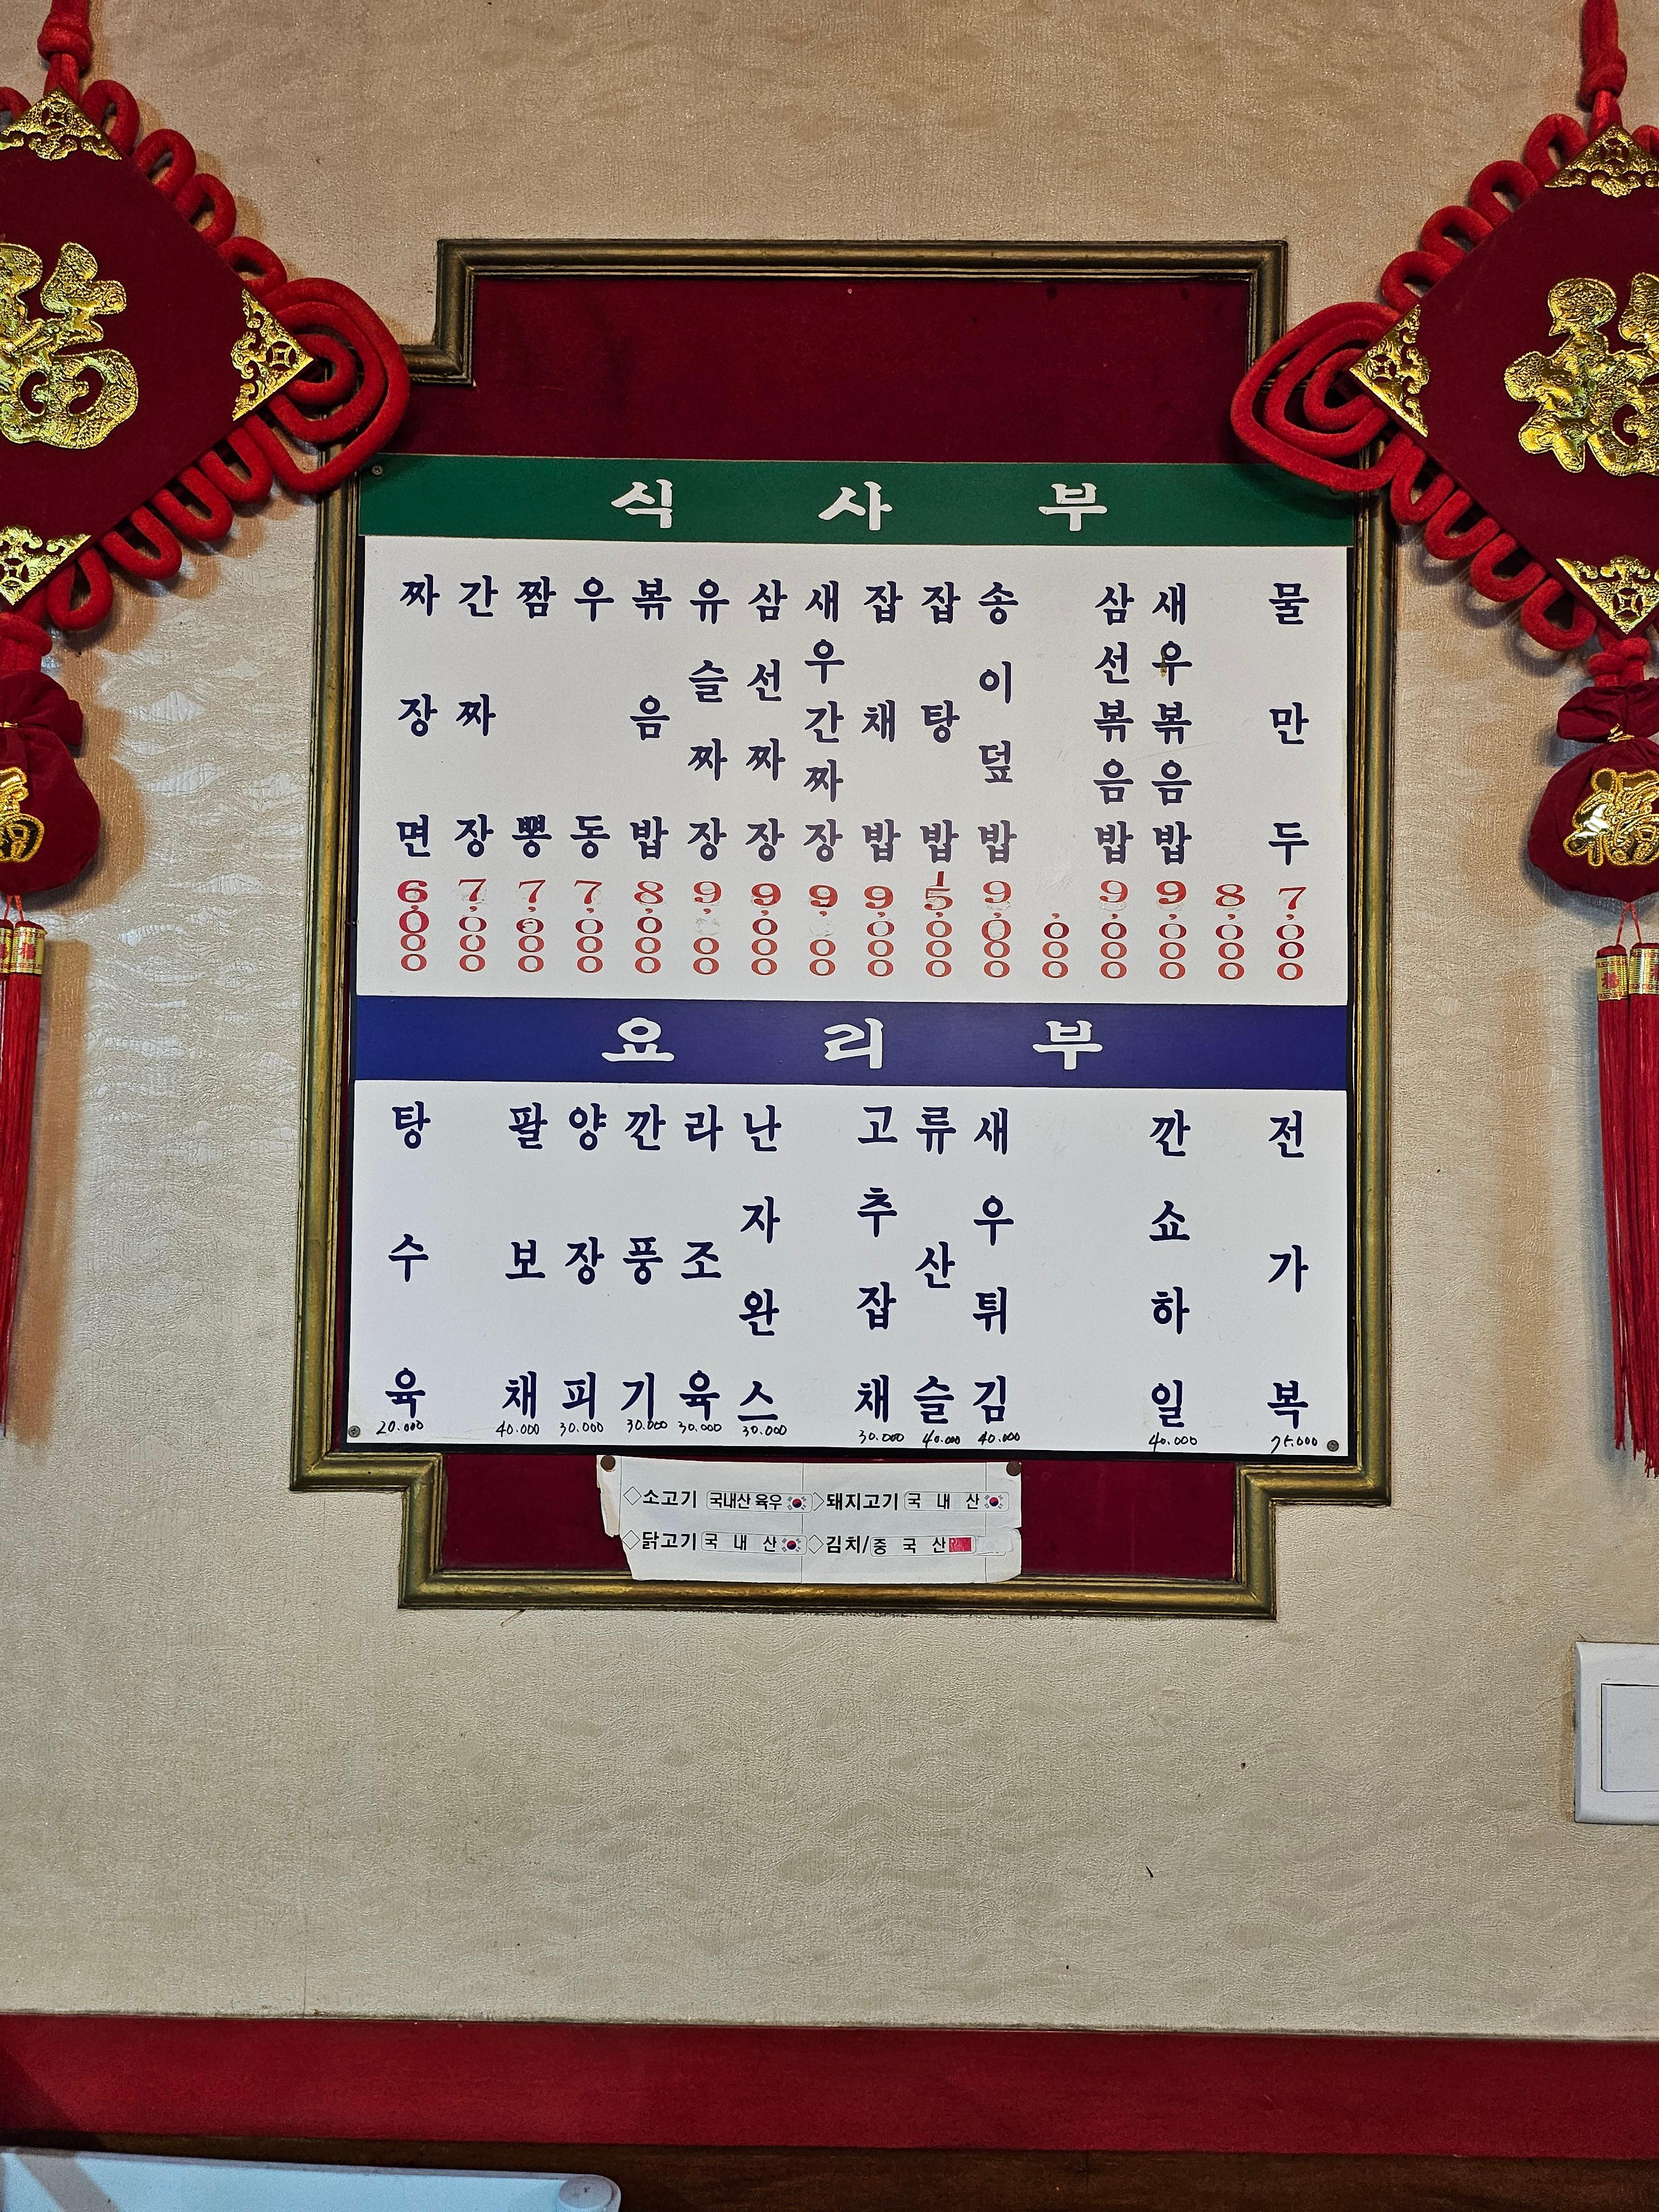 식사부
짜장면 6,000
간짜장 7,000
짬뽕 7,000
우동 7,000
볶음밥 8,000
유슬짜장 9,0
삼선짜장 9,000
새우간짜장 9,0
잡채밥 9,000
잡탕밥 15,000
송이덮밥 9,000
,000
삼선볶음밥 9,000
새우볶음밥 9,000
8,000
물만두 7,000
요리부
탕수육 20.000
팔보채 40.000
양장피 30.000
깐풍기 30.000
라조육 30.000
난자완스 30.000
고추잡채 30.000
류산슬 40.000
새우튀김 40.000
깐쇼하일 40.000
전가복 75.000
◇소고기 국내산 육우 ◇돼지고기 국내산
◇닭고기 국내산 ◇김치/중국산
福
福